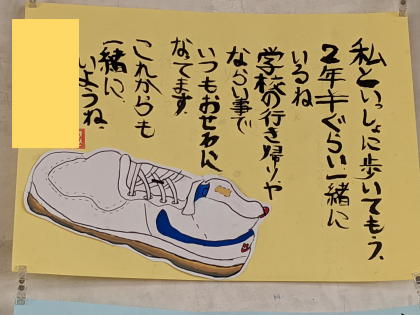 私といっしょに歩いてもう、
2年半ぐらい一緒に
いるね
学校の行き帰りや
ならい事で
いつもおせわん
なてます。
これからも
一緒に、
いようね。